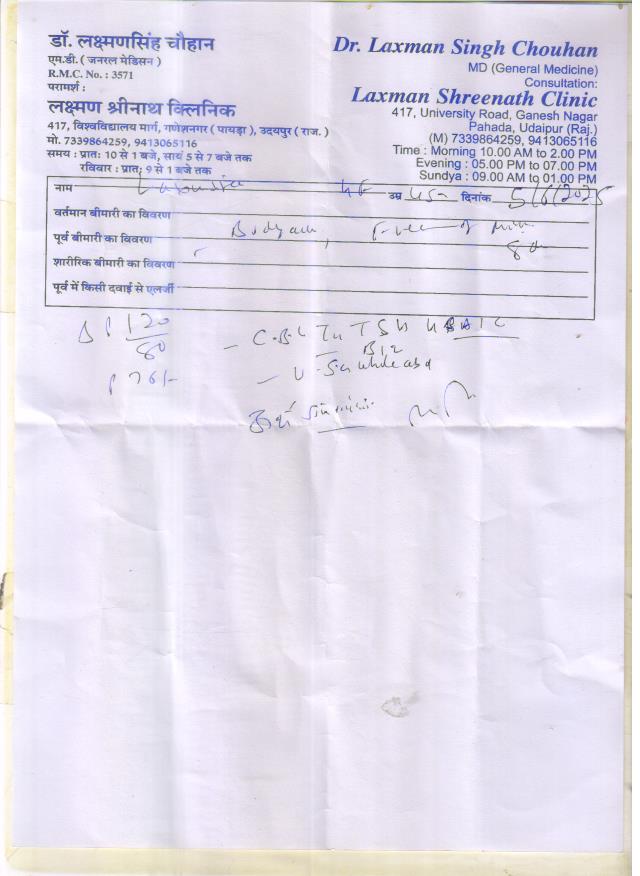 डॉ. लक्ष्मणसिंह चौहान
एम.डी. ( जनरल मेडिसन )
R.M.C. No. : 3571
परामर्श :
लक्ष्मण श्रीनाथ क्लिनिक
417, विश्वविद्यालय मार्ग, गणेशनगर ( पायड़ा ), उदयपुर ( राज. )
मो. 7339864259, 9413065116
समय : प्रातः 10 से 1 बजे, सायं 5 से 7 बजे तक
रविवार : प्रातः 9 से 1 बजे तक
Dr. Laxman Singh Chouhan
MD (General Medicine)
Consultation:
Laxman Shreenath Clinic
417, University Road, Ganesh Nagar
Pahada, Udaipur (Raj.)
(M) 7339864259, 9413065116
Time : Morning 10.00 AM to 2.00 PM
Evening : 05.00 PM to 07.00 PM
Sundya : 09.00 AM to 01.00 PM
नाम उम्र दिनांक 5/6/2025
वर्तमान बीमारी का विवरण
पूर्व बीमारी का विवरण
शारीरिक बीमारी का विवरण
पूर्व में किसी दवाई से एलर्जी
120
80
B12
whole abd